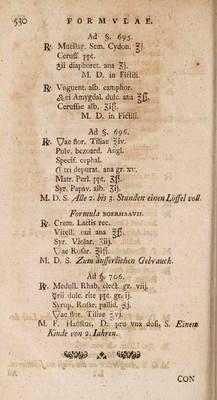 530 FORMVLAE.
Ad §. 695.
℞. Mucilag. Sem. Cydon. ℥j.
Ceruss. ppt.
♁ii diaphoret. ana ʒj.
M. D. in Fictili.
℞. Vnguent. alb. camphor.
Amygdal. dulc. ana ℥ß.
Cerussae alb. ʒiß.
M. D. in Fictili.
Ad §. 696.
℞. 🜄ae flor. Tiliae ℥iv.
Pulv. bezoard. Angl.
Specif. cephal.
tri depurat. ana gr. xv.
Matr. Perl. ppt. ʒß.
Syr. Papav. alb. ℥j.
M. D. S. Alle 2. bis 3. Stunden einen Löffel voll.
Formula BOERHAAVII.
℞. Crem. Lactis rec.
Vitell. oui ana ℥ß.
Syr. Violar. ʒiij.
🜄ae Rosar. ℥iß.
M. D. S. Zum äusserlichen Gebrauch.
Ad §. 706.
℞. Medull. Rhab. elect. gr. viij.
♀rii dulc. rite ppt. gr. ij.
Syrup. Rosar. pallid. ʒj.
🜄ae flor. Tiliae ʒvj.
M. F. Haustus, D. pro vna dosi, S. Einem
Kinde von 2. Jahren.
CON